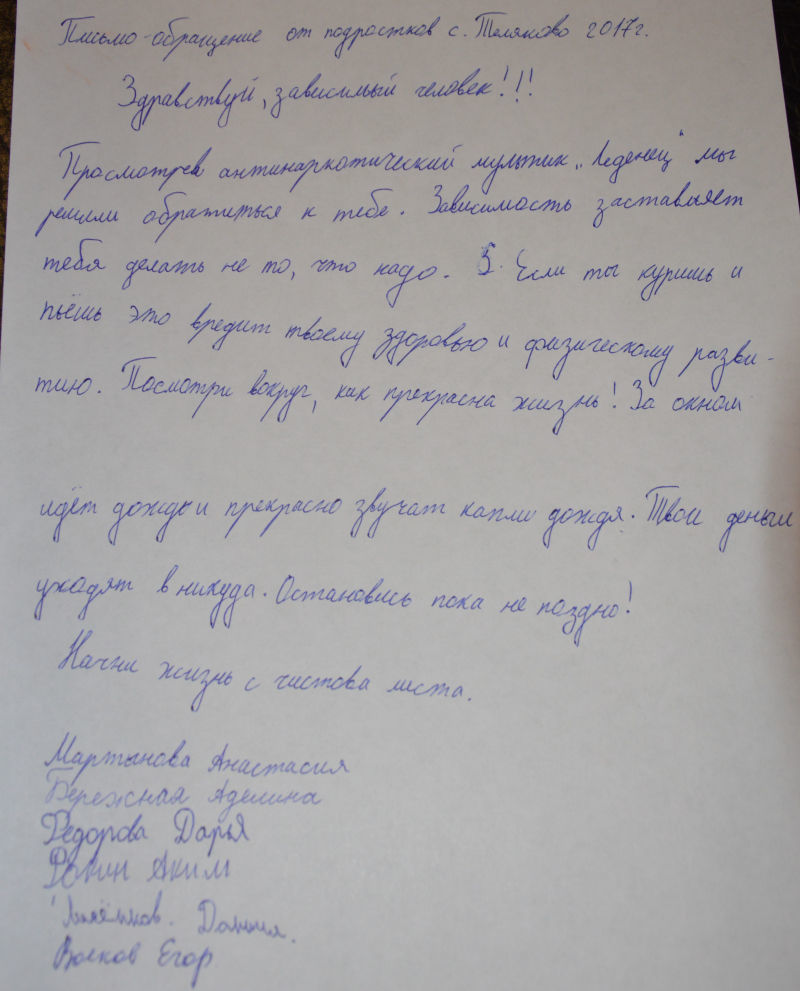 Письмо-обращение от подростков с. Теляково 2017г.
Здравствуй, зависимый человек!!!
Просмотрев антинаркотический мультик „Леденец" мы
решили обратиться к тебе. Зависимость заставляет
тебя делать не то, что надо. Если ты куришь и
пьёшь это вредит твоему здоровью и физическому разви-
тию. Посмотри вокруг, как прекрасна жизнь! За окном
идёт дождь и прекрасно звучат капли дождя. Твои деньги
уходят в никуда. Остановись пока не поздно!
Начни жизнь с чистова листа.
Мартынова Анастасия
Бережная Аделина
Федорова Дарья
Аким
Данила.
Волков Егор